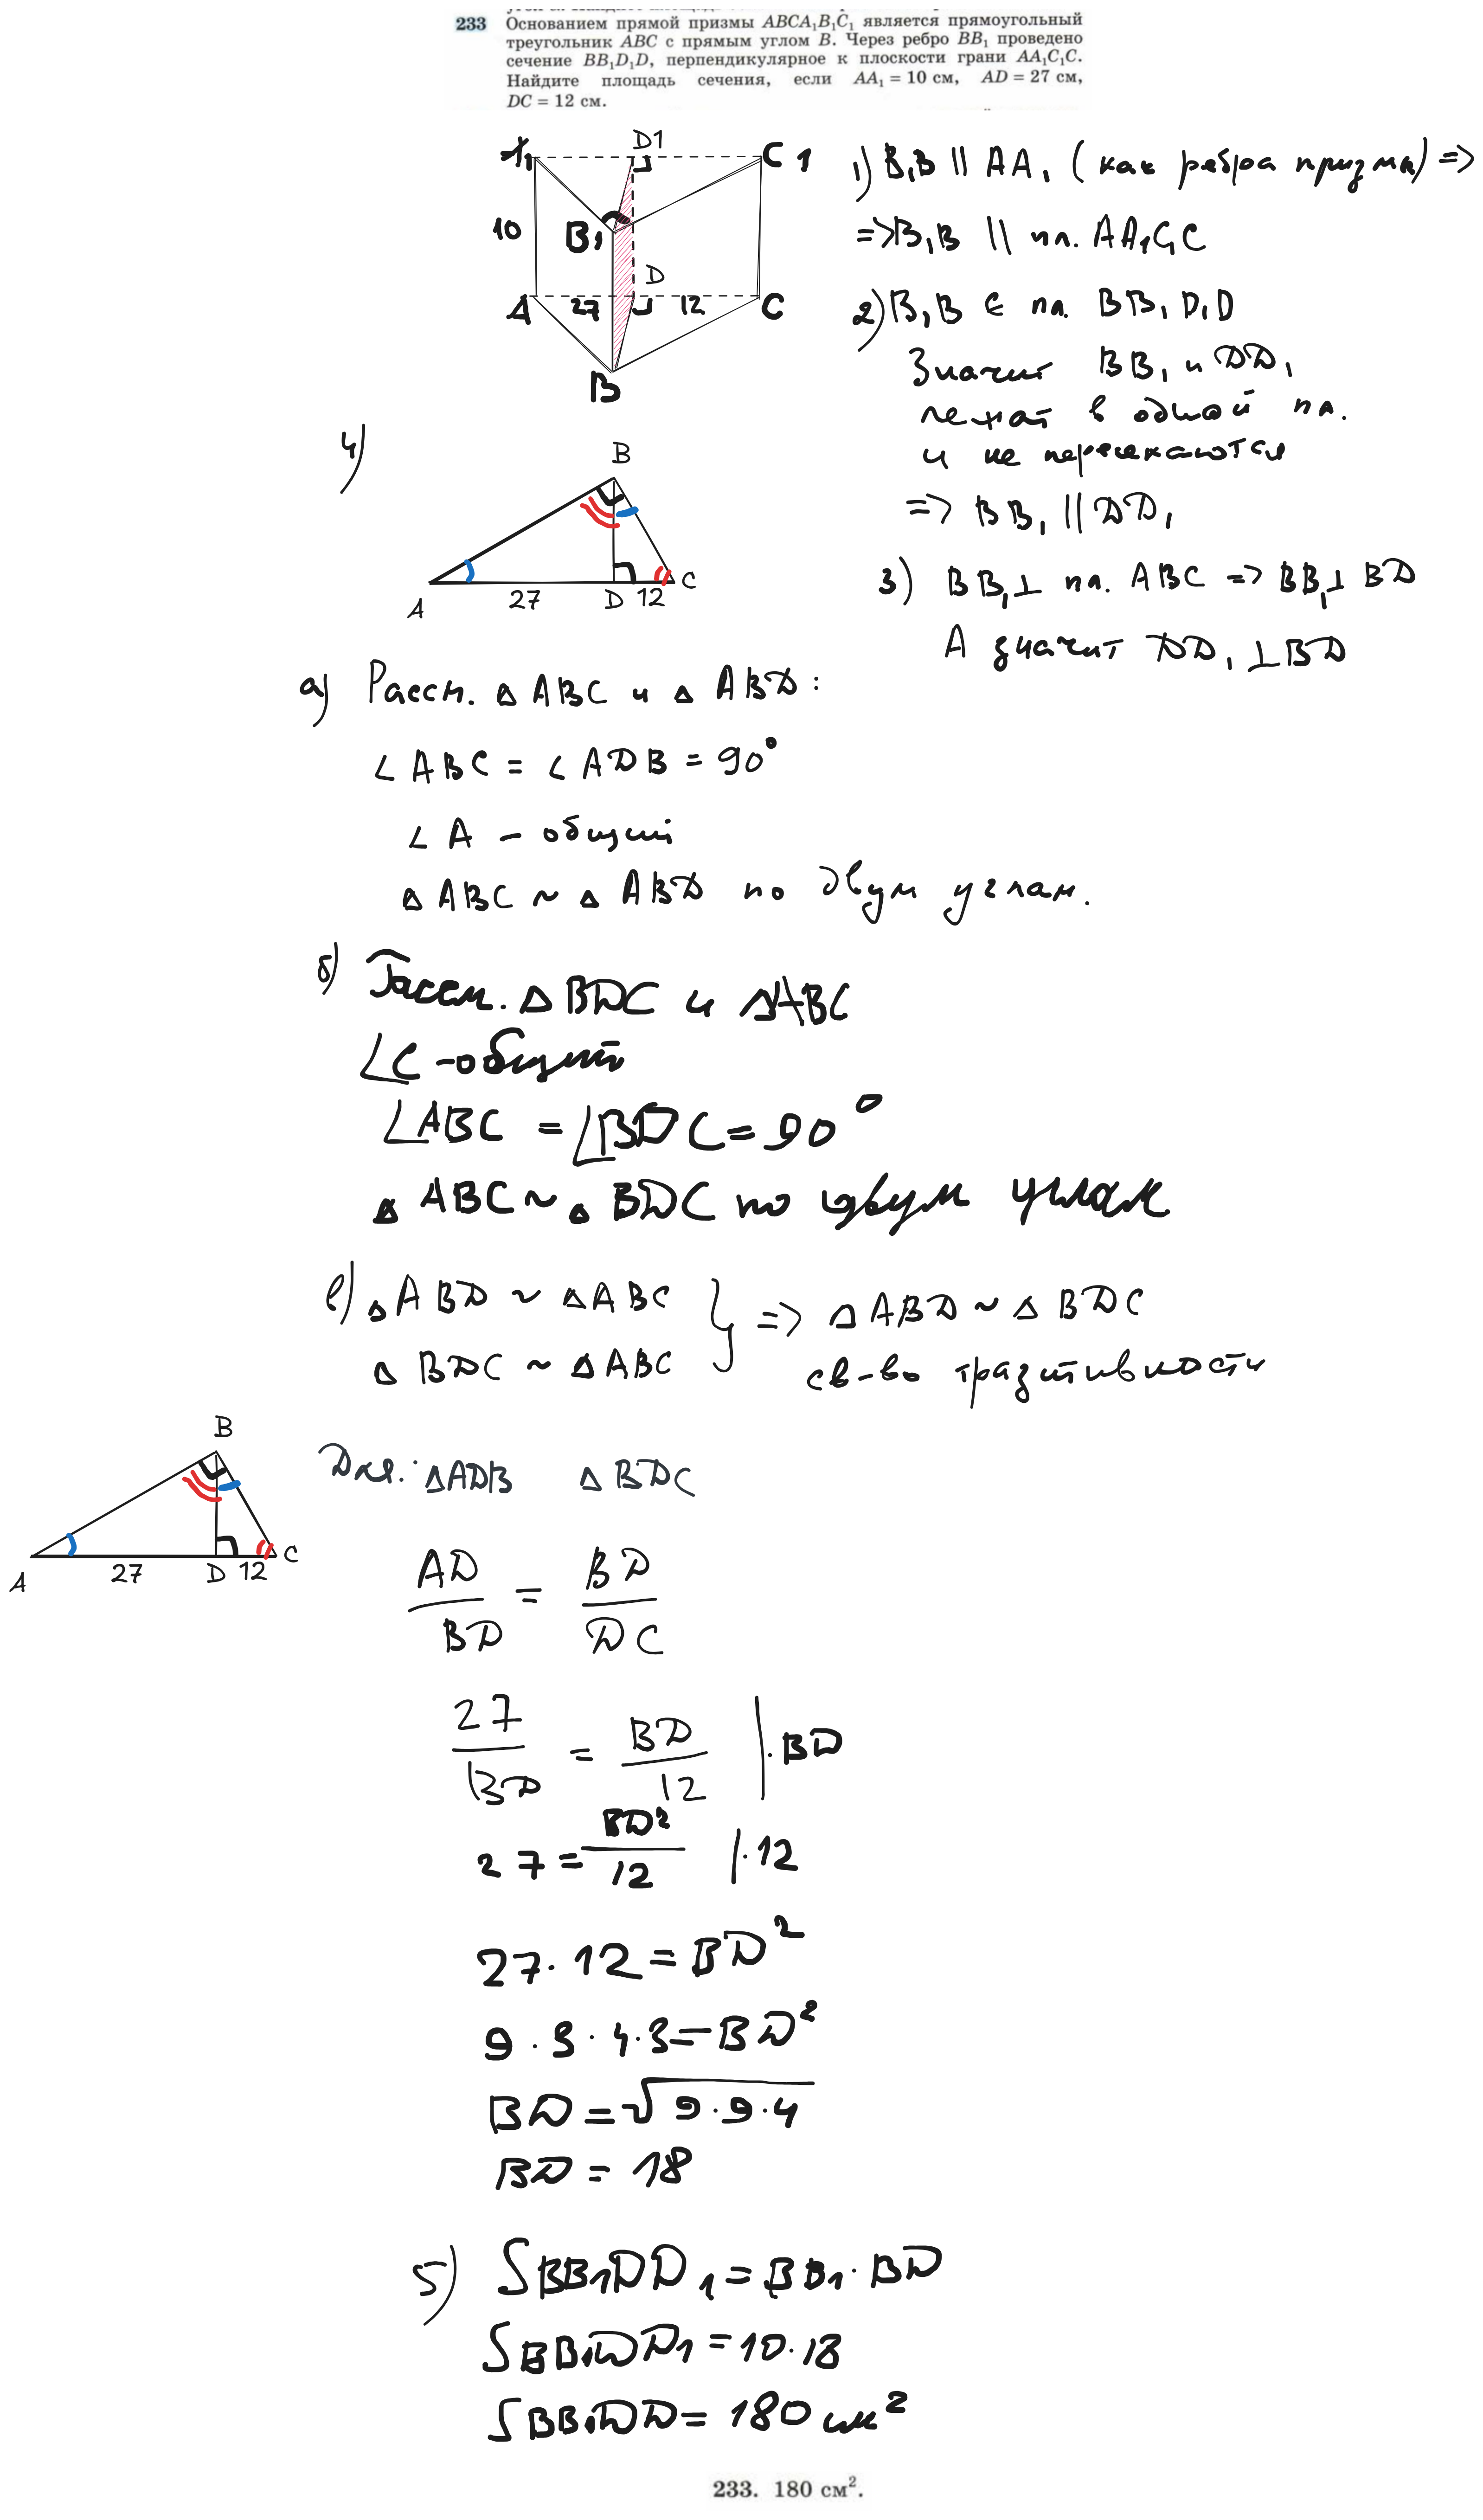 233 Основанием прямой призмы ABCA₁B₁C₁ является прямоугольный
треугольник ABC с прямым углом B. Через ребро BB₁ проведено
сечение BB₁D₁D, перпендикулярное к плоскости грани AA₁C₁C.
Найдите площадь сечения, если AA₁ = 10 см, AD = 27 см,
DC = 12 см.
A₁ D1 C1
10 B₁
D
A 27 12 C
B
1) B₁B || AA₁ (как ребра призмы) =>
=> B₁B || пл. AA₁C₁C
2) B₁B ∈ пл. BB₁D₁D
Значит BB₁ и DD₁
лежат в одной пл.
и не пересекаются
=> BB₁ || DD₁
3) BB₁⊥ пл. ABC => BB₁⊥ BD
А значит DD₁ ⊥ BD
4)
B
A 27 D 12 C
а) Рассм. △ ABC и △ ABD:
∠ ABC = ∠ ADB = 90°
∠ A – общий
△ ABC ~ △ ABD по двум углам.
б) Рассм. △ BDC и △ABC
∠C -общий
∠ABC = ∠BDC = 90°
△ ABC ~ △ BDC по двум углам
в) △ ABD ~ △ABC } => △ ABD ~ △ BDC
△ BDC ~ △ABC св-во транзитивности
B
A 27 D 12 C
Для: △ADB △ BDC
AD/BD = BD/DC
27/BD = BD/12 | · BD
27 = BD²/12 | · 12
27 · 12 = BD²
9 · 3 · 4 · 3 = BD²
BD = √9 · 9 · 4
BD = 18
5) SBB₁DD₁ = BB₁ · BD
SBB₁DD₁ = 10 · 18
SBB₁DD = 180 см²
233. 180 см².